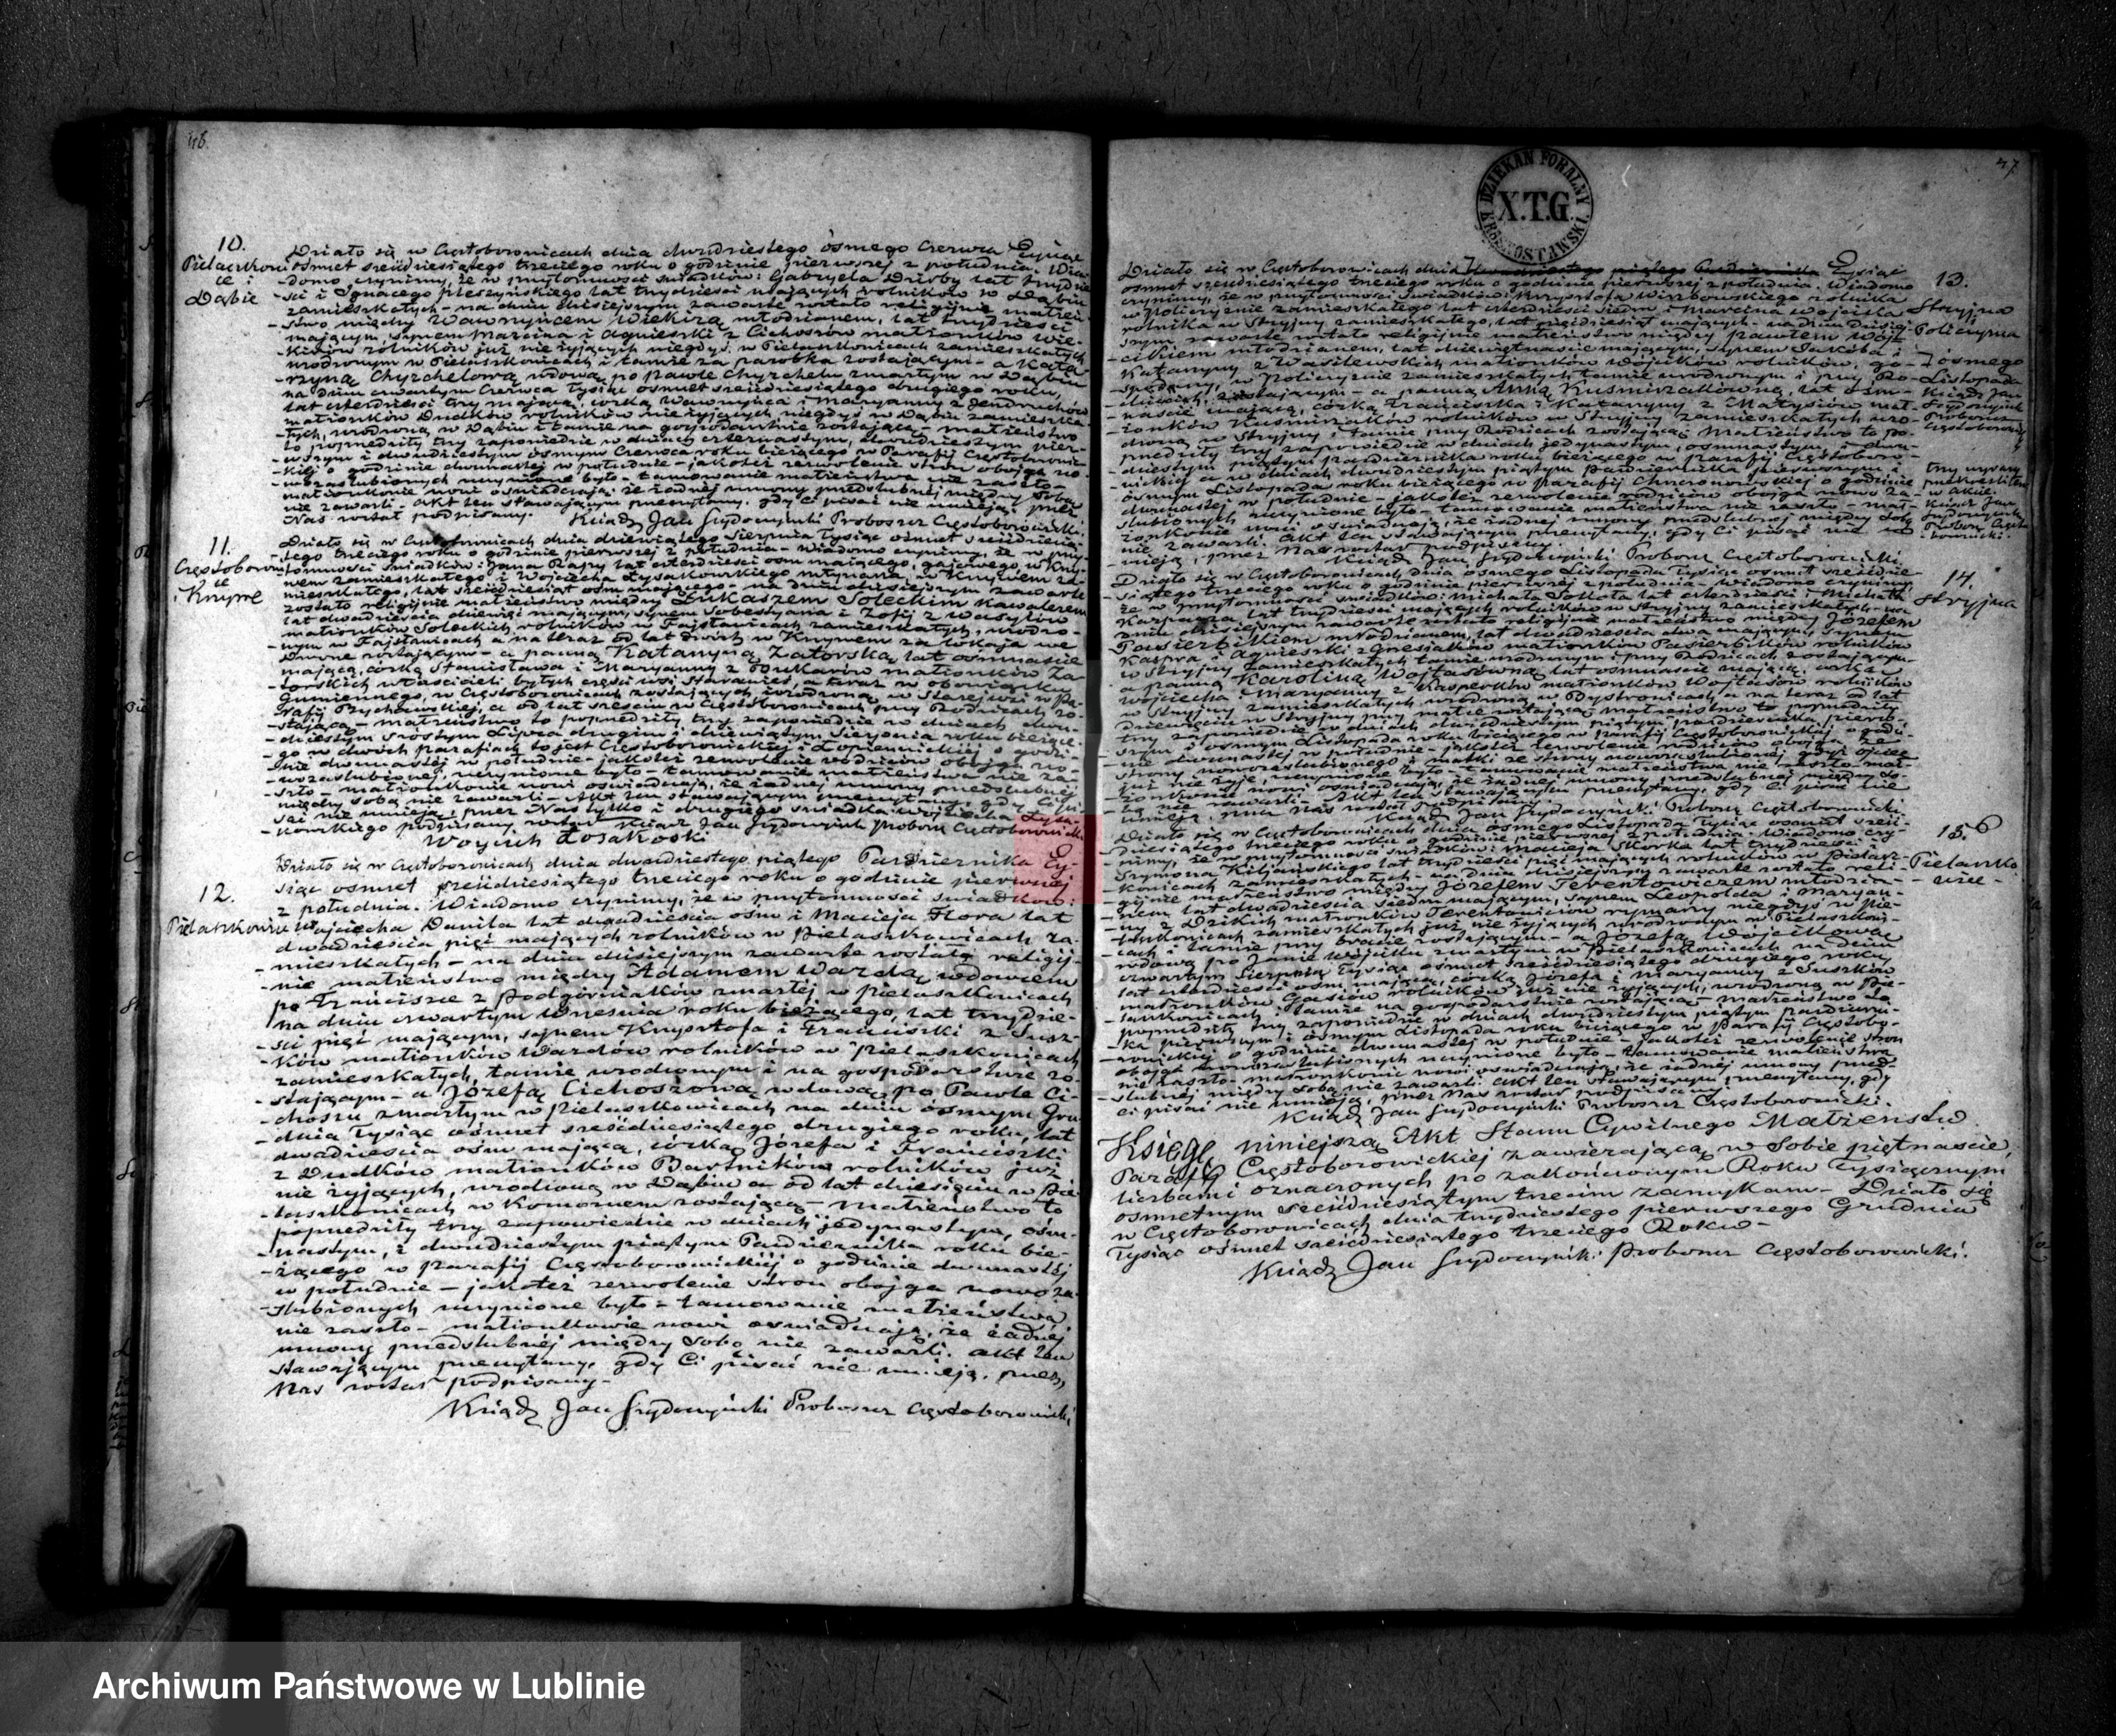 48.
10.
Pielaszkowi
ce i
Dąbie
Działo się w Częstoborowicach dnia dwudziestego ósmego Czerwca Tysiąc
ośmset sześćdziesiątego trzeciego roku o godzinie pierwszej z południa. Wia-
domo czynimy, że w przytomności świadków: Gabryela Dziby lat trzydzie-
ści i Ignacego Pleszyńskiego lat trzydzieści mających rolników w Dąbiu
zamieszkałych – na dniu dzisiejszym zawarte zostało religijne małżeń-
-stwo między Wawrzyńcem Wiekirą młodzianem, lat trzydzieści
mającym, synem Marcina i Agnieszki z Cichoszów małżonków Wie-
-kirów rolników już nie żyjących niegdyś w Pielaszkowicach zamieszkałych
urodzonym w Pielaszkowicach i tamże za parobka zostającym – a Kata-
-rzyną Chyrchelową wdową po Pawle Chyrchelu zmarłym w Dąbiu
na dniu czwartym Czerwca Tysiąc ośmset sześćdziesiątego drugiego roku,
lat czterdzieści trzy mającą, córką Wawrzyńca i Maryanny z Jendruchów
małżonków Dudków rolników nie żyjących niegdyś w Dąbiu zamieszka-
-łych, urodzoną w Dąbiu i tamże na gospodarstwie zostającą – małżeństwo
to poprzedziły trzy zapowiedzie w dniach czternastym, dwudziestym pier-
-wszym i dwudziestym ósmym Czerwca roku bieżącego w Parafij Częstoborowic-
-kiej o godzinie dwunastej w południe – jakoteż zezwolenie stron obojga no-
-wozaślubionych uczynione było – tamowanie małżeństwa nie zaszło –
małżonkowie nowi oświadczają, że żadnej umowy przedślubnej między sobą
nie zawarli – Akt ten stawającym przeczytany, gdy Ci pisać nie umieją, przez
Nas został podpisany.
Ksiądz Jan Szydoczyński Proboszcz Częstoborowicki.
11.
Częstoborowi
ce
i Knywe
Działo się w Częstoborowicach dnia dziewiątego Sierpnia Tysiąc ośmset sześćdziesią-
-tego trzeciego roku o godzinie pierwszej z południa – Wiadomo czynimy, że w przy-
-tomności świadków: Jana Rapy lat czterdzieści ośm mającego, gajowego, w Kny-
wem zamieszkałego i Wojciecha Łysakowskiego młynarza, w Knywem za-
mieszkałego, lat sześćdziesiąt ośm mającego – na dniu dzisiejszym zawarte
zostało religijne małżeństwo między Łukaszem Soleckim kawalerem
lat dwadzieścia dziewięć mającym, synem Sobestyana i Zofij z Wasylów
małżonków Soleckich rolników w Fajsławicach zamieszkałych, urodzo-
-nym w Fajsławicach a na teraz od lat dwóch w Knywem za lokaja we
Dworze zostającym – a panną Katarzyną Zatorską lat ośmnaście
mającą, córką Stanisława i Maryanny z Pukarów małżonków Za-
-torskich
gumiennego, w Częstoborowicach zostających urodzoną w Starejwsi w Pa-
-rafij Bychawskiej, a od lat sześciu w Częstoborowicach przy Rodzicach zo-
-stającą – małżeństwo to poprzedziły trzy zapowiedzie w dniach dwu-
-dziestym szóstym Lipca drugim i dziewiątym Sierpnia roku bieżące-
-go w dwóch parafiach to jest Częstoborowickiej i Łopiennickiej o godzi-
-nie dwunastej w południe – jakoteż zezwolenie rodziców obojga no-
-wozaślubionej, uczynione było – tamowanie małżeństwa nie za-
-szło – małżonkowie nowi oświadczają, że żadnej umowy przedślubnej
między sobą nie zawarli – Akt ten stawającym przeczytany, gdy Ci pi-
sać nie umieją, przez Nas tylko i drugiego świadka Wojciecha Łysa-
-kowskiego podpisany został. Ksiądz Jan Szydoczyński Proboszcz Częstoborowicki
Wojciech Łosakoski
12.
Pielaszkowice
Działo się w Częstoborowicach dnia dwudziestego piątego Października Ty-
siąc ośmset sześćdziesiątego trzeciego roku o godzinie pierwszej
z południa. Wiadomo czynimy, że w przytomności świadków:
Wojciecha Daniła lat dwadzieścia ośm i Macieja Flora lat
dwadzieścia pięć mających rolników w Pielaszkowicach za-
-mieszkałych – na dniu dzisiejszym zawarte zostało religij-
-nie małżeństwo między Adamem Wardą wdowcem
po Franciszce z Podgórniaków zmarłej w Pielaszkowicach
na dniu czwartym Września roku bieżącego, lat trzydzie-
-ści pięć mającym, synem Krzysztofa i Franciszki z Susz-
-ków małżonków Wardów rolników w Pielaszkowicach
zamieszkałych, tamże urodzonym i na gospodarstwie zo-
-stającym – a Józefą Cichoszową wdową po Pawle Ci-
-choszu zmarłym w Pielaszkowicach na dniu ósmym Gru-
-dnia Tysiąc ośmset sześćdziesiątego drugiego roku, lat
dwadzieścia ośm mającą, córką Józefa i Franciszki
z Dudków małżonków Bartników rolników już
nie żyjących, urodzoną w Dąbiu a od lat dziesięciu w Pie-
-laszkowicach w Komornem zostającą – małżeństwo to
poprzedziły trzy zapowiedzie w dniach jedynastym, ośm-
-nastym, i dwudziestym piątym Października roku bie-
-żącego w parafij Częstoborowickiej o godzinie dwunastej
w południe – jakoteż zezwolenie stron obojga nowoza-
-ślubionych uczynione było – tamowanie małżeństwa
nie zaszło – małżonkowie nowi oświadczają, że żadnej
umowy przedślubnej między sobą nie zawarli. Akt ten
stawającym przeczytany, gdy Ci pisać nie umieją, przez
Nas został podpisany –
Ksiądz Jan Szydoczyński Proboszcz Częstoborowicki,
47
DZIEKAN FORALNY KRASNOSTAWSKI
X.T.G.
13.
Stryjna
Policzyzna
Działo się w Częstoborowicach dnia Dwudziestego piątego Października Tysiąc
ośmset sześćdziesiątego trzeciego roku o godzinie pierwszej z południa. Wiadomo
czynimy, że w przytomności świadków: Krzysztofa Wierzbowskiego rolnika
w Policzyznie zamieszkałego lat czterdzieści siedm i Marcina Wojcika
rolnika w Stryjny zamieszkałego, lat pięćdziesiąt mających – na dniu dzisiej-
szym zawarte zostało religijne małżeństwo między Pawłem Wój-
-cikiem młodzianem, lat dziewiętnaście mającym, synem Jakóba i
Katarzyny z Wasilewskich małżonków Wójcików rolników, go-
-spodarzy, w Policzyznie zamieszkałych tamże urodzonym i przy Ro-
-dzicach zostającym – a panną Anną Kuśmirzakówną, lat ośm-
naście mającą, córką Franciszka i Katarzyny z Matysiów mał-
-żonków Kuśmirzaków rolników w Stryjny zamieszkałych uro-
-dzoną w Stryjny i tamże przy Rodzicach zostającą – małżeństwo to po-
-przedziły trzy zapowiedzie w dniach jedynastym, ośmnastym i dwu-
-dziestym piątym Października roku bieżącego w parafij Częstoboro-
-wickiej a w dniach dwudziestym piątym Października pierwszym i
ósmym Listopada roku bieżącego w parafij Chmielowskiej o godzinie
dwunastej w południe – jakoteż zezwolenie rodziców obojga nowo za-
-ślubionych uczynione było – tamowanie małżeństwa nie zaszło – mał-
-żonkowie nowi oświadczają, że żadnej umowy przedślubnej między sobą
nie zawarli. Akt ten stawającym przeczytany, gdy Ci pisać nie u-
-mieją, przez Nas został podpisany.
Ksiądz Jan Szydoczyński Proboszcz Częstoborowicki.
ósmego
Listopada
Ksiądz Jan
Szydoczyński
Proboszcz
Częstoborowicki
trzy wyrazy
przekreślone
w akcie.
Ksiądz Jan
Szydoczyński
Proboszcz Często-
borowicki.
14.
Stryjna
Działo się w Częstoborowicach dnia ósmego Listopada Tysiąc ośmset sześćdzie-
-siątego trzeciego roku o godzinie pierwszej z południa – Wiadomo czynimy
że w przytomności świadków: Michała Sokoła lat czterdzieści i Michała
Karpiuza lat trzydzieści mających rolników w Stryjny zamieszkałych – na
dniu dzisiejszym zawarte zostało religijne małżeństwo między Józefem
Pasierbikiem młodzianem, lat dwadzieścia dwa mającym, synem
Kaspra i Agnieszki z Gnesiaków małżonków Pasierbików rolników
w Stryjny zamieszkałych tamże urodzonym i przy Rodzicach zostającym
a panną Karoliną Wojtasówną lat ośmnaście mającą, córką
Wojciecha i Maryanny z Kasperków małżonków Wojtasów rolników
w Stryjny zamieszkałych urodzoną w Bystrzenicach a na teraz od lat
dziewięciu w Stryjny przy matce zostającą – małżeństwo to poprzedziły
trzy zapowiedzie w dniach dwudziestym piątym Października pierw-
-szym i ósmym Listopada roku bieżącego w parafij Częstoborowickiej o godzi-
-nie dwunastej w południe – jakoteż zezwolenie rodziców obojga ze
strony nowozaślubionego i matki ze strony nowozaślubionej, gdyż ojciec
już nie żyje, uczynione było – tamowanie małżeństwa nie zaszło – mał-
-żonkowie nowi oświadczają, że żadnej umowy przedślubnej między so-
-bą nie zawarli – Akt ten stawającym przeczytany, gdy Ci pisać nie
umieją, przez Nas został podpisany.
Ksiądz Jan Szydoczyński Proboszcz Częstoborowicki
15.
Pielaszko
wice
Działo się w Częstoborowicach dnia ósmego Listopada Tysiąc ośmset sześć-
dziesiątego trzeciego roku o godzinie pierwszej z południa – Wiadomo czy-
-nimy, że w przytomności świadków: Macieja Skorka lat trzydzieści i
Szymona Kiljańskiego lat trzydzieści pięć mających rolników w Pielasz-
-kowicach zamieszkałych – na dniu dzisiejszym zawarte zostało reli-
-gijnie małżeństwo między Józefem Terentowiczem młodzia-
-nem lat dwadzieścia siedm mającym, synem Leopolda i Maryan-
-ny z Dzikich małżonków Terentowiczów rymarzy niegdyś w Pie-
-laszkowicach zamieszkałych już nie żyjących urodzonym w Pielaszkowi-
-cach i tamże przy bracie zostającym – a Józefą Wójcikową
wdową po Janie Wójciku zmarłym w Pielaszkowicach na dniu
czwartym Sierpnia Tysiąc ośmset sześćdziesiątego drugiego roku,
lat czterdzieści ośm mającą, córką Józefa i Maryanny z Suszków
małżonków Gasiów rolników już nie żyjących, urodzoną w Pie-
-laszkowicach i tamże na gospodarstwie zostającą – małżeństwo to
poprzedziły trzy zapowiedzie w dniach dwudziestym piątym Paździer-
-nika pierwszym i ósmym Listopada roku bieżącego w Parafij Częstobo-
-rowickiej o godzinie dwunastej w południe – jakoteż zezwolenie stron
obojga nowozaślubionych uczynione było – tamowanie małżeństwa
nie zaszło – małżonkowie nowi oświadczają, że żadnej umowy przed-
-ślubnej między sobą nie zawarli. Akt ten stawającym przeczytany, gdy
Ci pisać nie umieją, przez Nas został podpisany.
Ksiądz Jan Szydoczyński Proboszcz Częstoborowicki.
Księgę niniejszą Akt Stanu Cywilnego Małżeństw
Parafij Częstoborowickiej zawierającą w Sobie piętnaście,
liczbami oznaczonych po zakończonym Roku Tysiącznym
ośmsetnym sześćdziesiątym trzecim zamykam – Działo się
w Częstoborowicach dnia trzydziestego pierwszego Grudnia
Tysiąc ośmset sześćdziesiątego trzeciego Roku –
Ksiądz Jan Szydoczyński Proboszcz Częstoborowicki.
Archiwum Państwowe w Lublinie